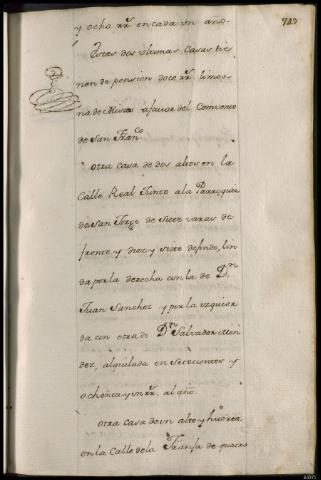 749
y ocho rr.ˢ en cada un año.
Estas dos ultimas Casas tie
nen de pension doce rr.ˢ limos-
na de Misas afavor del Convento
de San Fran.ᶜᵒ
Otra casa de dos altos en la
Calle Real Junto ala Parroquia
de San Jorge de Siete varas de
frente y diez y siete defondo, lin
da por la derecha con la de D.ⁿ
Juan Sanchez y por la izquier
da con otra de D.ⁿ Salvador Men
dez, alquilada en Setecientos y
ochenta y un rr.ˢ al año.
Otra casa de un alto y huerta
en la Calle dela Franja de quatro